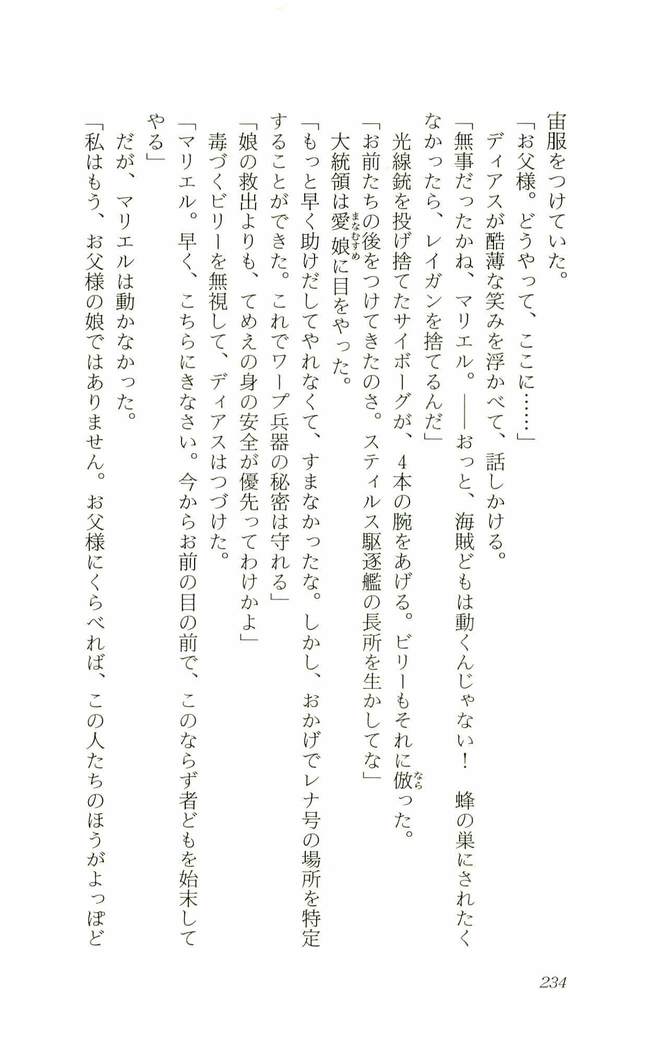 宙服をつけていた。
「お父様。どうやって、ここに……」
ディアスが酷薄な笑みを浮かべて、話しかける。
「無事だったかね、マリエル。――おっと、海賊どもは動くんじゃない！　蜂の巣にされたく
なかったら、レイガンを捨てるんだ」
光線銃を投げ捨てたサイボーグが、4本の腕をあげる。ビリーもそれに倣った。
なら
「お前たちの後をつけてきたのさ。スティルス駆逐艦の長所を生かしてな」
大統領は愛娘に目をやった。
まなむすめ
「もっと早く助けだしてやれなくて、すまなかったな。しかし、おかげでレナ号の場所を特定
することができた。これでワープ兵器の秘密は守れる」
「娘の救出よりも、てめえの身の安全が優先ってわけかよ」
毒づくビリーを無視して、ディアスはつづけた。
「マリエル。早く、こちらにきなさい。今からお前の目の前で、このならず者どもを始末して
やる」
だが、マリエルは動かなかった。
「私はもう、お父様の娘ではありません。お父様にくらべれば、この人たちのほうがよっぽど
234